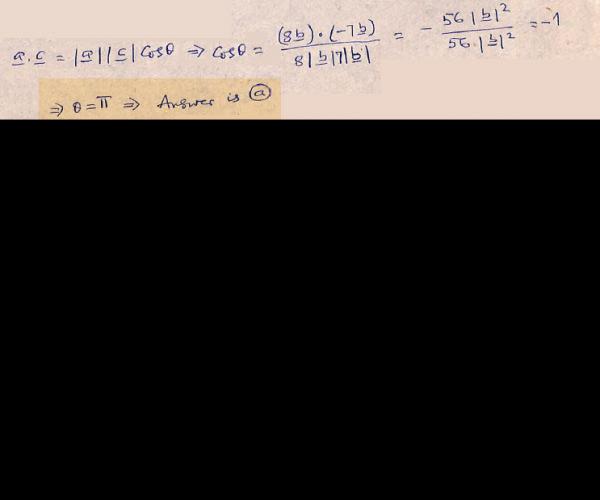 a̲ . c̲ = |a̲| |c̲| Cosθ ⇒ Cosθ = (8b̲) · (-7b̲) / 8|b̲|7|b̲| = - 56 |b̲|² / 56 . |b̲|² = -1
⇒ θ = π ⇒ Answer is ⓐ